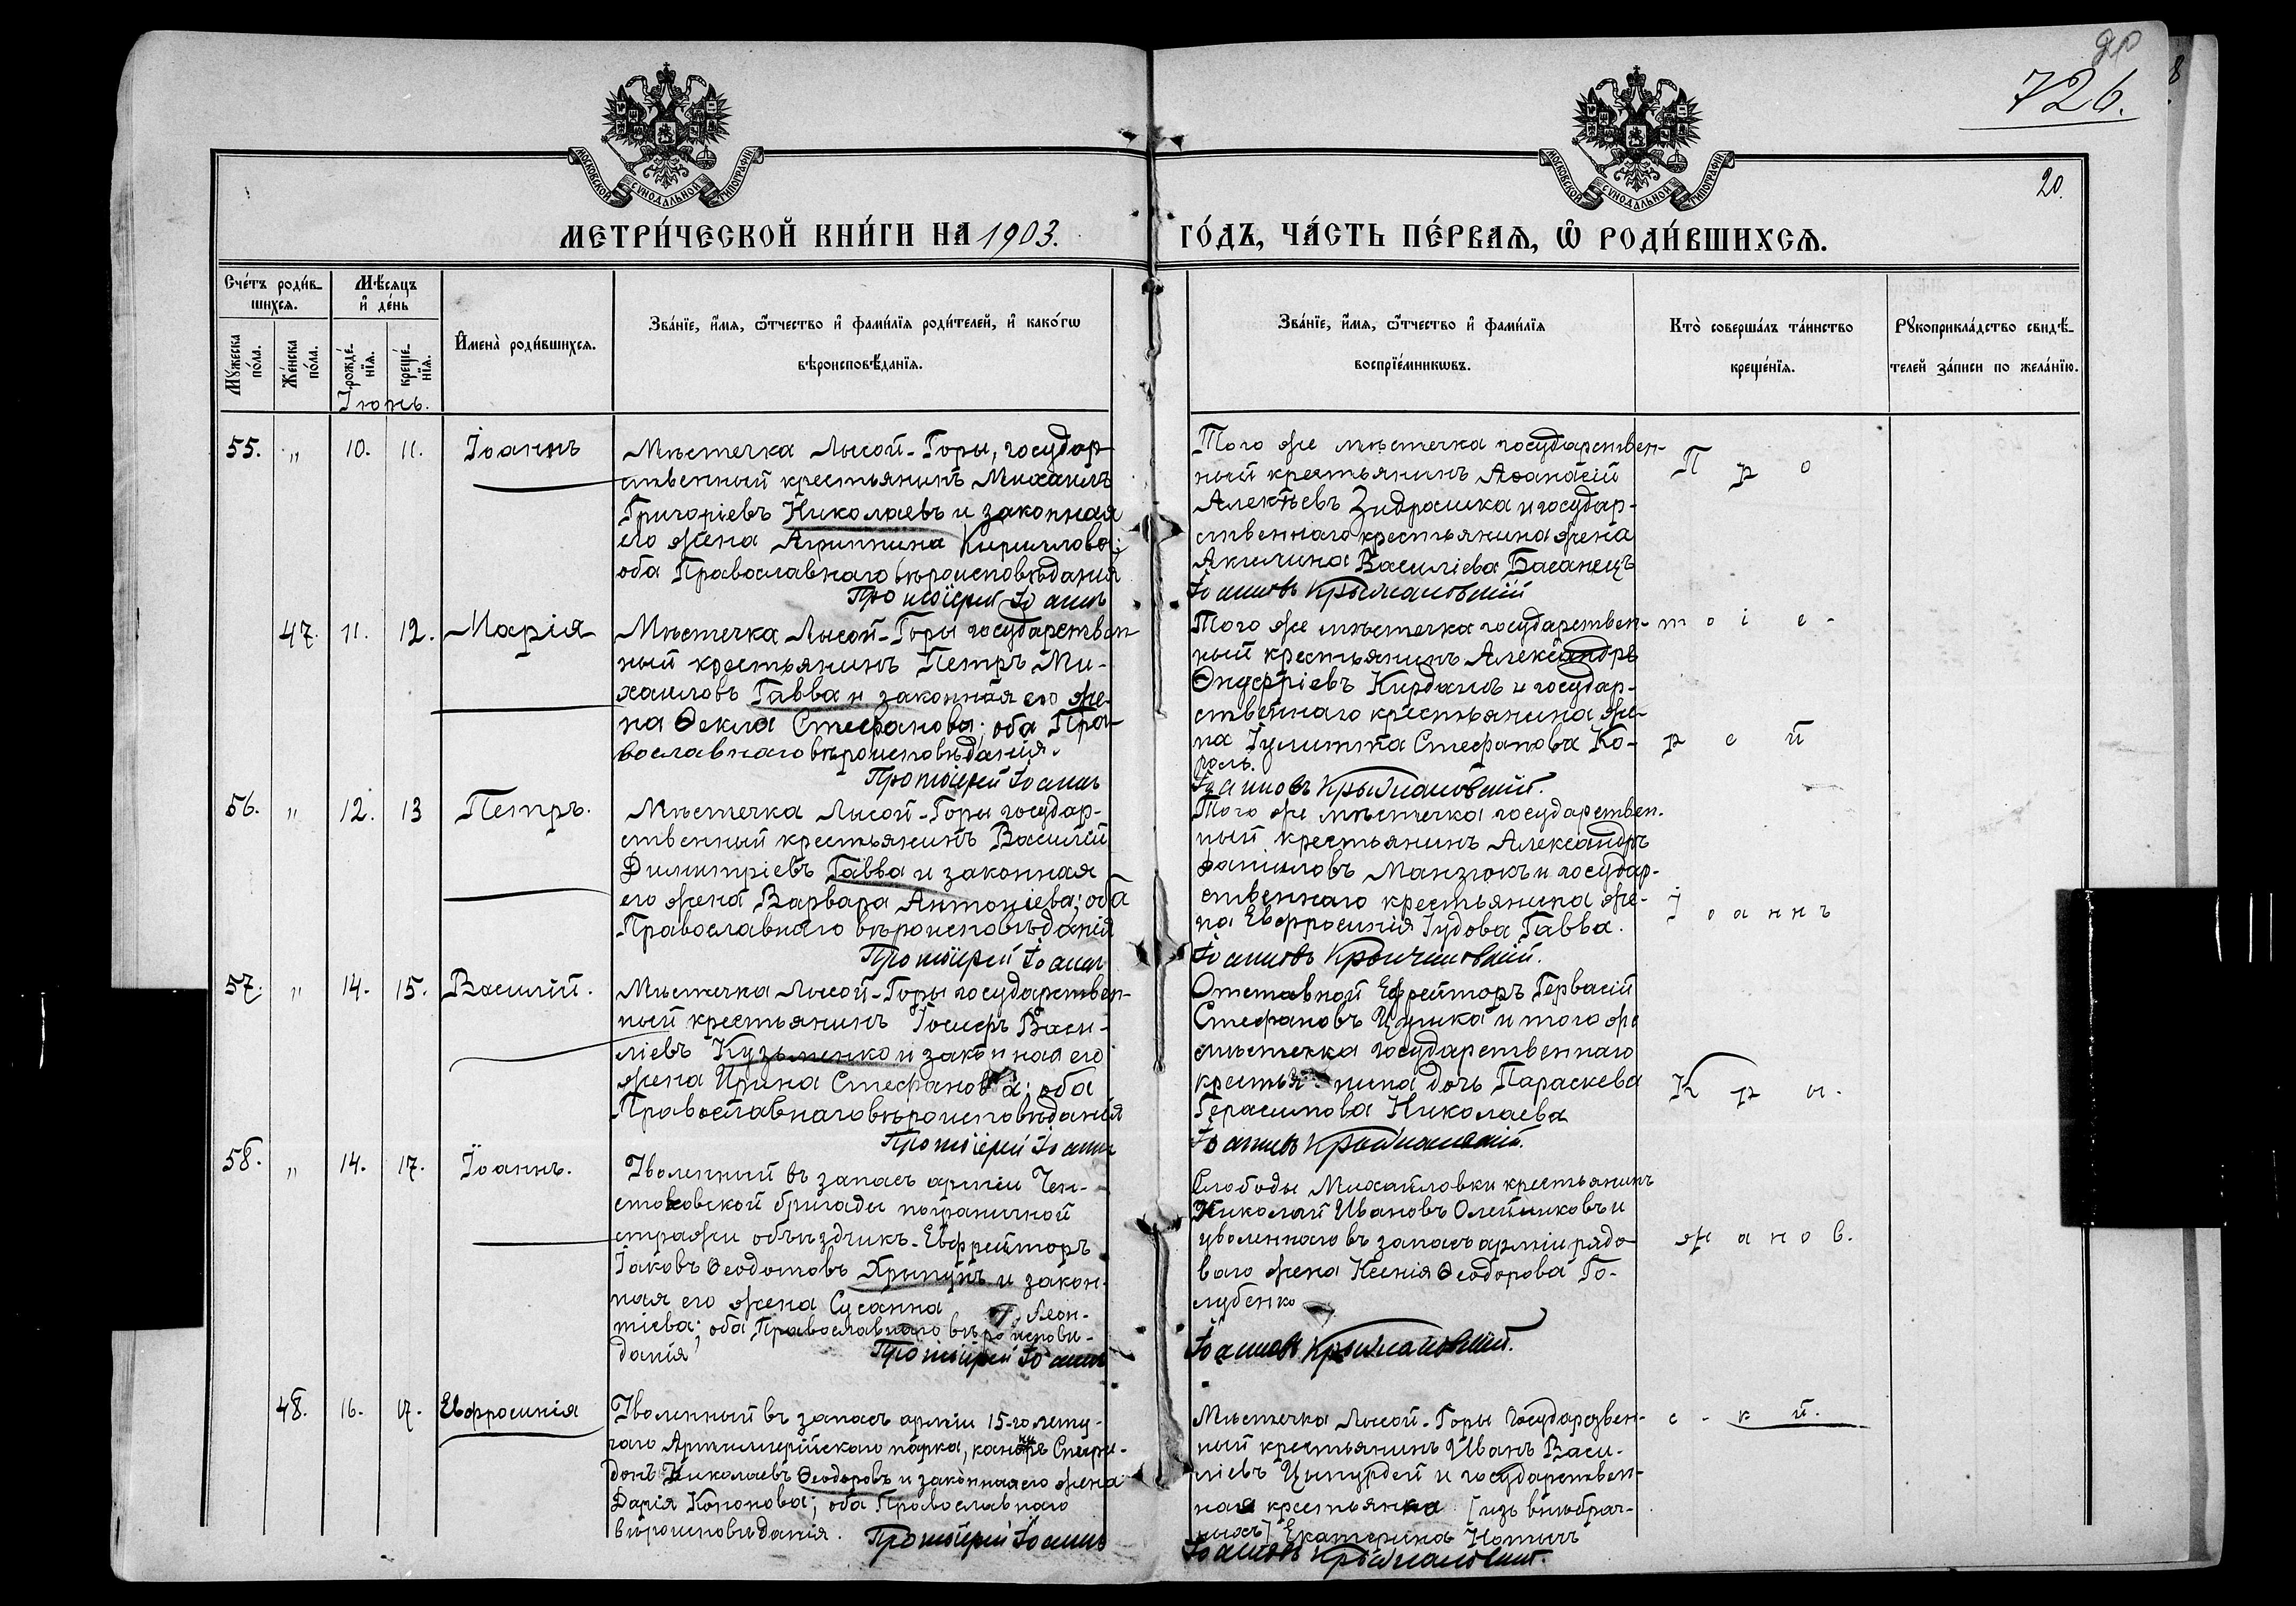 726.
20.
МОСКОВСКОЙ СѴНОДАЛЬНОЙ ТИПОГРАФІИ
МОСКОВСКОЙ СѴНОДАЛЬНОЙ ТИПОГРАФІИ
МЕТРИ́ЧЕСКОЙ КНИ́ГИ НА 1903. ГО́ДЪ, ЧА́СТЬ ПЕ́РВАѦ, Ѽ РОДИ́ВШИХСѦ.
Сче́тъ роди́в-
шихсѧ.
Мѣ́сяцъ
и҆ де́нь
Мꙋ́жеска
по́ла.
Же́нска
по́ла.
рожде́-
нїѧ.
креще́-
нїѧ.
Іюнь.
И҆мена̀ роди́вшихсѧ.
Зва́нїе, и҆́мѧ, ѻ҆́тчество и҆ фами́лїѧ роди́телей, и҆ како́гѡ
вѣроисповѣ́данїѧ.
Зва́нїе, и҆́мѧ, ѻ҆́тчество и҆ фами́лїѧ
воспрїе́мникѡвъ.
Кто̀ соверша́лъ та́инство
креще́нїѧ.
Рꙋкоприкла́дство свидѣ́-
телей за́писи по жела́нїю.
55. " 10. 11. Іоаннъ
Мѣстечка Лысой-Горы, государ-
ственный крестьянинъ Михаилъ
Григоріевъ Николаевъ и законная
его жена Агриппина Кириллова;
оба Православнаго вѣроисповѣданія
Протоіерей Іоаннъ
Того же мѣстечка государствен-
ный крестьянинъ Аѳанасій
Алексѣевъ Задрошка и государ-
ственнаго крестьянина жена
Акилина Василіева Басанецъ
Іоанновъ Крыжановскій
П р о
47. 11. 12. Марія
Мѣстечка Лысой-Горы государствен-
ный крестьянинъ Петръ Ми-
хаиловъ Гавва и законная его же-
на Ѳекла Стефанова; оба Пра-
вославнаго вѣроисповѣданія.
Протоіерей Іоаннъ
Того же мѣстечка государствен-
ный крестьянинъ Александръ
Онуфріевъ Кирданъ и государ-
ственнаго крестьянина же-
на Іулитта Стефанова Ко-
роль.
Іоанновъ Крыжановскій.
т о і е -
р е й
56. " 12. 13 Петръ.
Мѣстечка Лысой-Горы государ-
ственный крестьянинъ Василій
Димитріевъ Гавва и законная
его жена Варвара Антоніева; оба
Православнаго вѣроисповѣданія
Протоіерей Іоаннъ
Того же мѣстечка государствен-
ный крестьянинъ Александръ
Даніиловъ Манзюкъ и государ-
ственнаго крестьянина же-
на Евфросинія Іудова Гавва.
Іоанновъ Крыжановскій.
І о а н н ъ
57. " 14. 15. Василій.
Мѣстечка Лысой-Горы государствен-
ный крестьянинъ Іосифъ Васи-
ліевъ Кузьменко и законная его
жена Ирина Стефанова; оба
Православнаго вѣроисповѣданія
Протоіерей Іоаннъ
Отставной Ефрейторъ Гервасій
Стефановъ и того же
мѣстечка государственнаго
крестьянина дочь Параскева
Герасимова Николаева
Іоанновъ Крыжановскій.
К р ы.
58. " 14. 17. Іоаннъ.
Уволенный въ запасъ арміи Чен-
стоховской бригады пограничной
стражи объѣздчикъ-Ефрейторъ
Іаковъ Ѳеодотовъ Хрыпунъ и закон-
ная его жена Сусанна Леон-
тіева; оба Православнаго вѣроисповѣ-
данія
Протоіерей Іоаннъ
Слободы Михайловки крестьянинъ
Николай Ивановъ Олейниковъ и
уволеннаго въ запасъ арміи рядо-
ваго жена Ксенія Ѳеодорова Го-
лубенко
Іоанновъ Крыжановскій.
ж а н о в.
48. 16. 17. Евфросинія
Уволенный въ запасъ арміи 15-го лету-
чаго Артиллерійскаго парка, канониръ Спири-
донъ Николаевъ Ѳеодоровъ и законная его жена
Дарія Кононова; оба Православнаго
вѣроисповѣданія.
Протоіерей Іоаннъ
Мѣстечка Лысой-Горы Государствен-
ный крестьянинъ Иванъ Васи-
ліевъ Цыпурдей и государствен-
ная крестьянка [изъ внѣбрач-
ныхъ] Екатерина
Іоанновъ Крыжановскій.
с - к й.